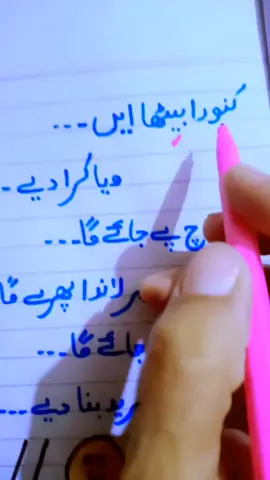 کنورا بیٹھا ایں ---
ویا کرا دیے -
چ پے جائے گا ---
لاندا پھرے گا
جائے گا ---
بنا دیے ---